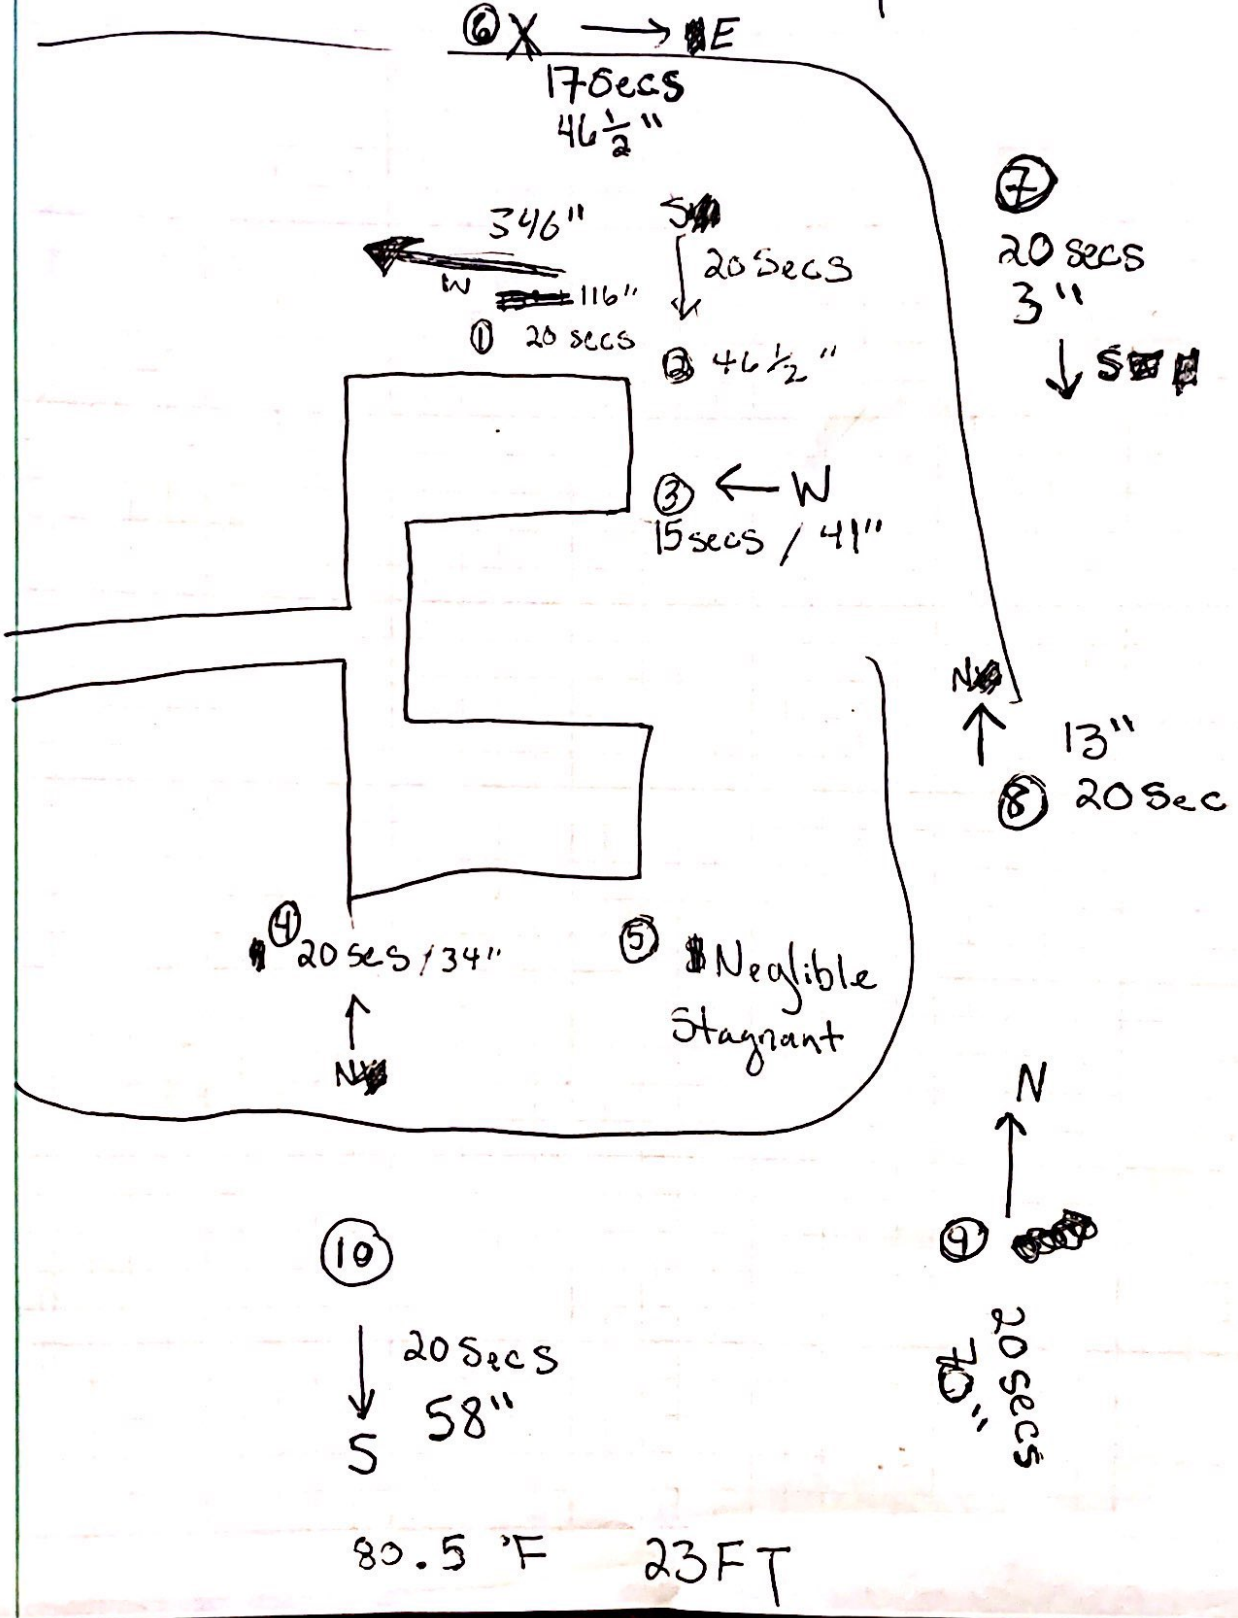 ⑥ X → E
17 secs
46 ½ "
⑦
20 secs
3 "
↓ S
346 "
W
116 "
① 20 secs
S
↓ 20 Secs
② 46 ½ "
③ ← W
15 secs / 41 "
N
↑
13 "
⑧ 20 Sec
④
20 secs / 34 "
↑
N
⑤ Neglible
Stagnant
N
↑
⑨
20 secs
70 "
⑩
↓ 20 Secs
58 "
S
80.5 °F 23 FT